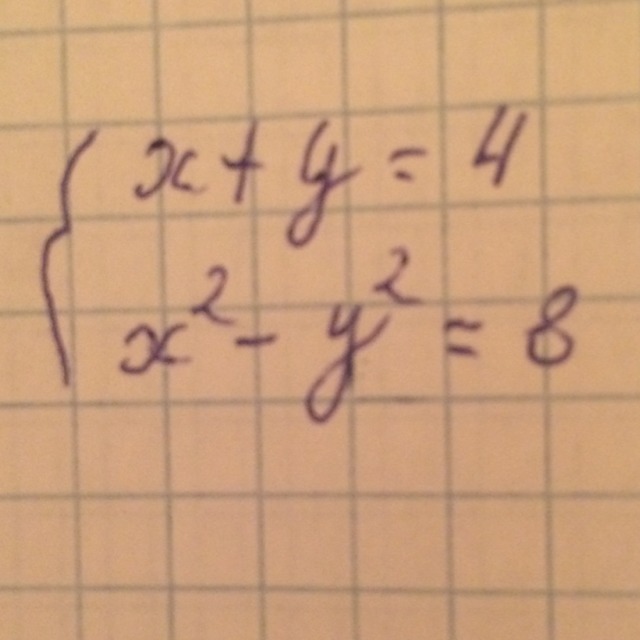 x + y = 4
x² - y² = 8